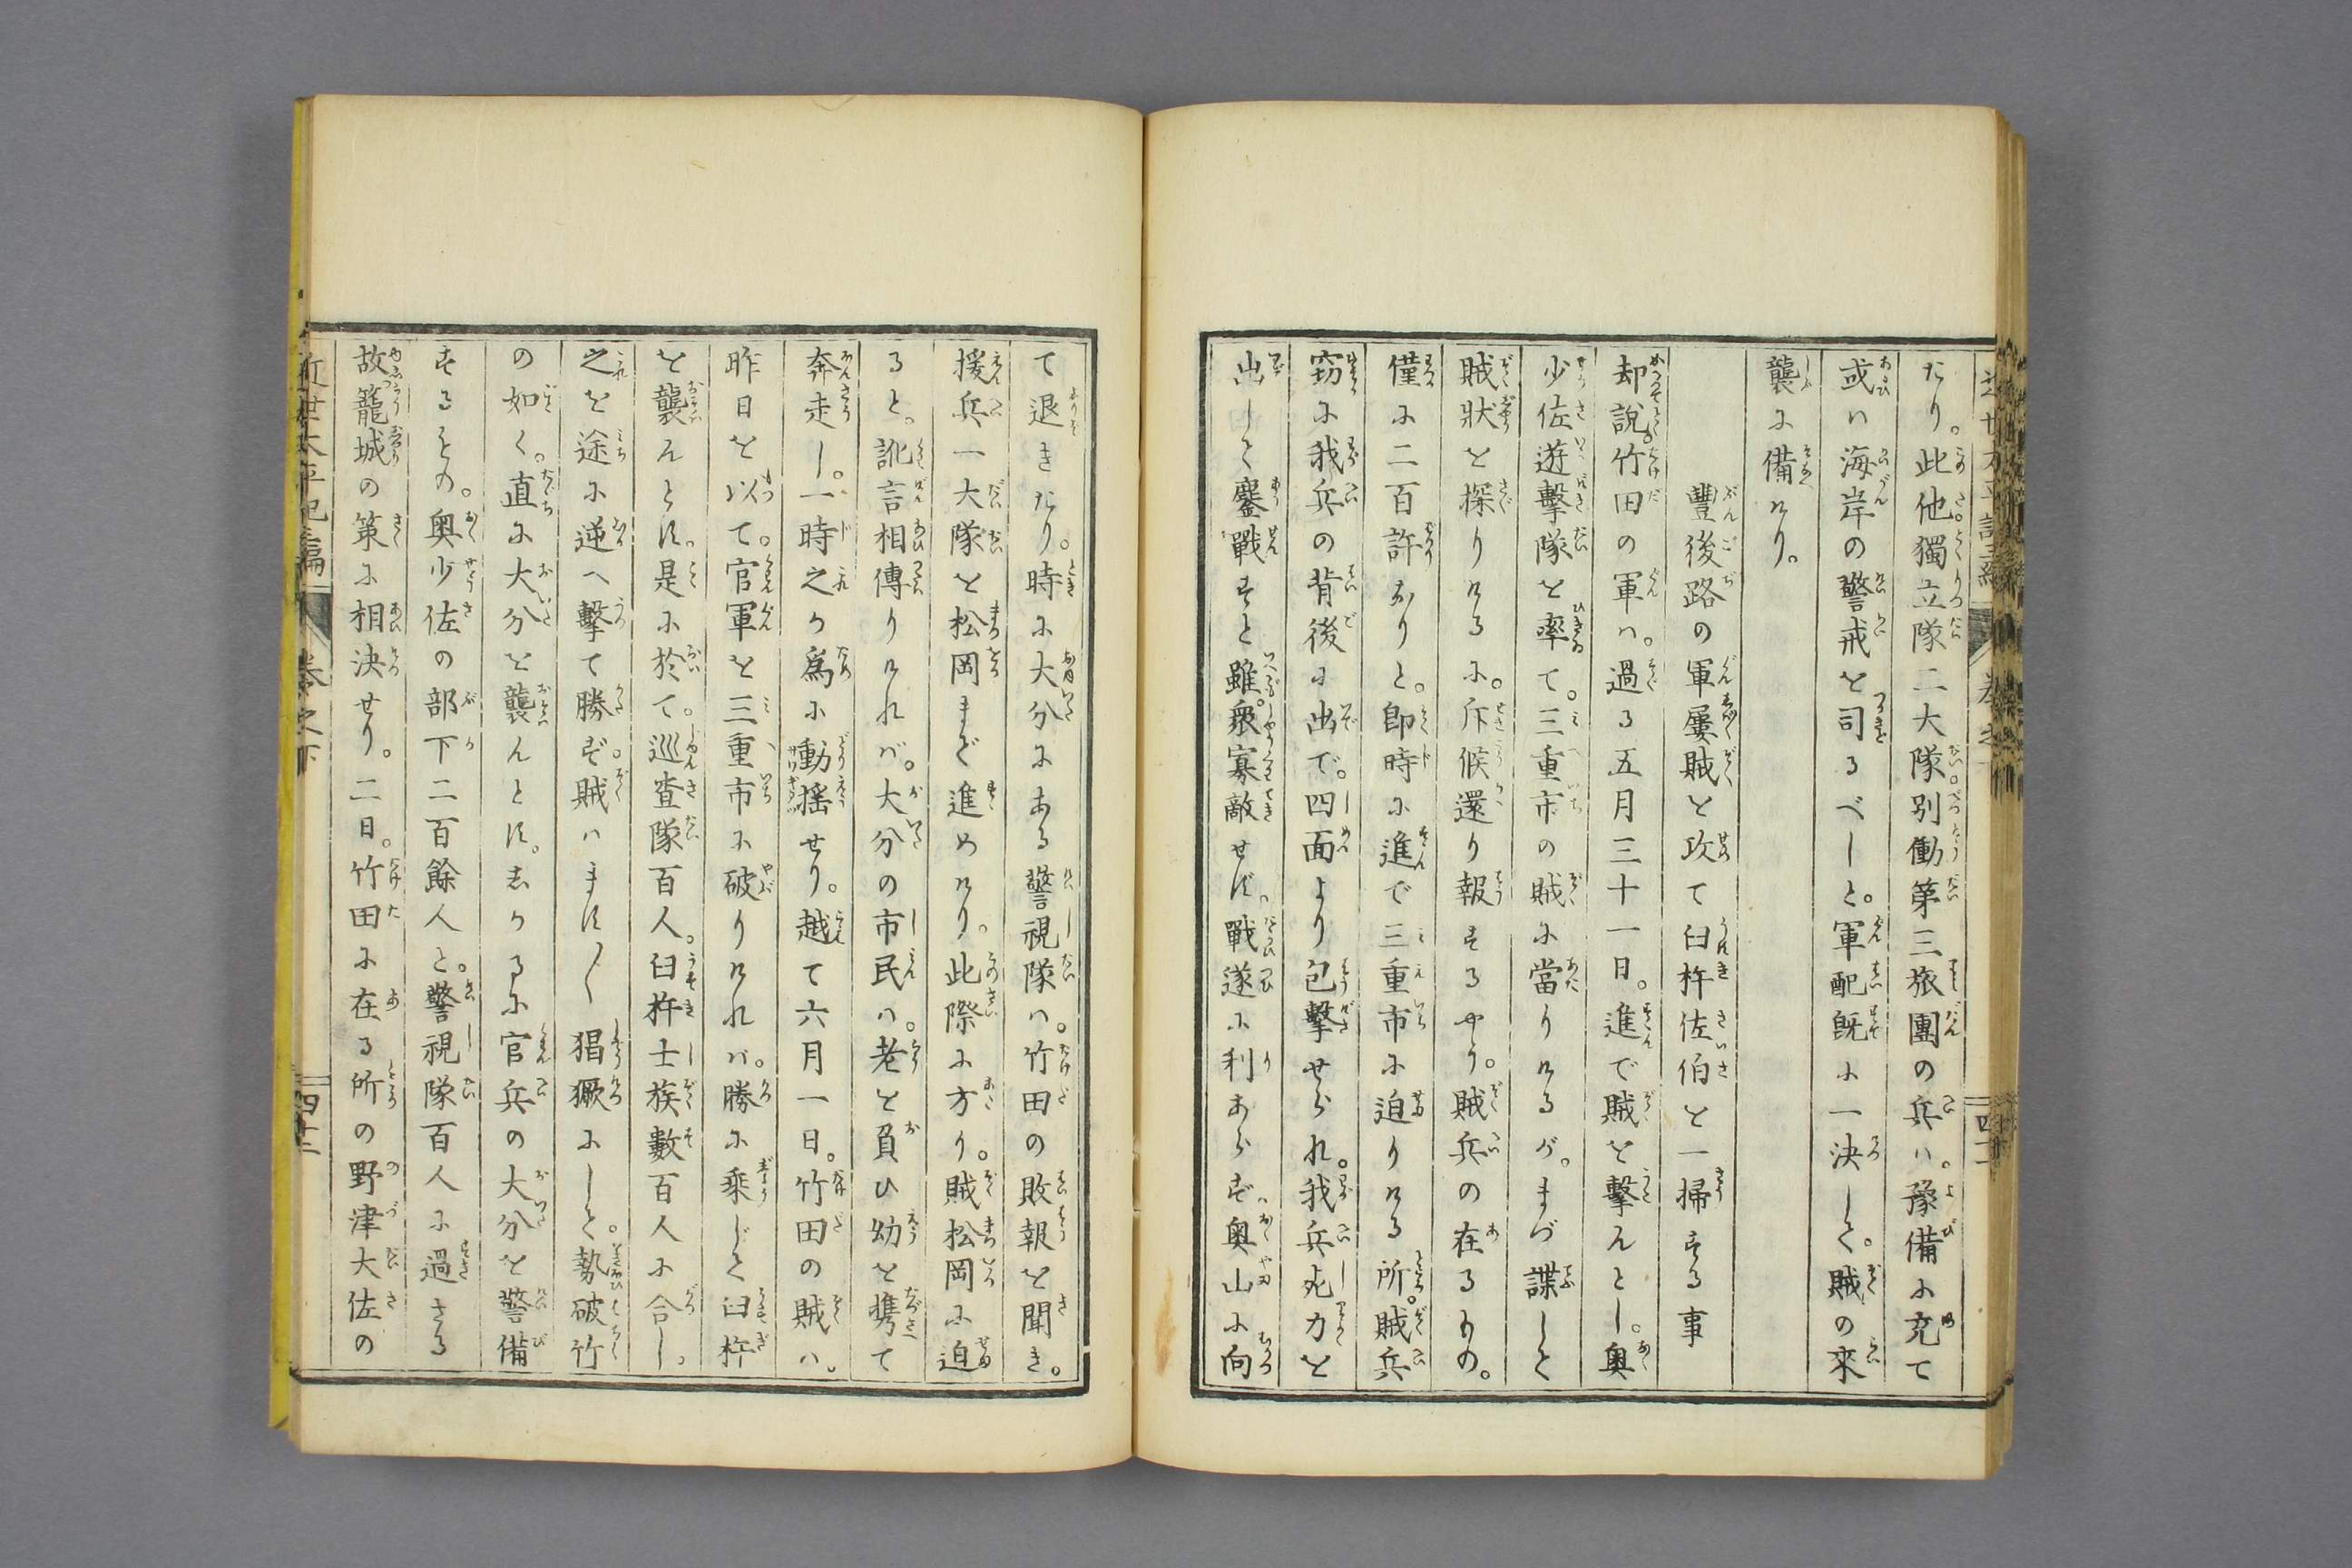 たり。此他獨立隊二大隊。別働第三旅團の兵ハ。豫備に充て
或ハ海岸の警戒を司るべしと。軍配既に一決して。賊の來
襲に備へけり。
豐後路の軍屢賊を攻て臼杵佐伯を一掃する事
却說。竹田の軍ハ。過る五月三十一日。進で賊を擊んとし。奥
少佐遊擊隊を率て。三重市の賊に當りけるが。まづ諜して
賊狀を探りけるに。斥候還り報するやう。賊兵の在るもの。
僅に二百許なりと。卽時に進で三重市に迫りける所。賊兵
窃に我兵の背後に出で。四面より包擊せられ。我兵死力を
出して鏖戰すと雖。衆寡敵せず。戰遂に利あらず奥山に向
て退きたり。時に大分にある警視隊ハ。竹田の敗報を聞き。
援兵一大隊を松岡まで進めけり。此際に方り。賊松岡に迫
ると。訛言相傳りければ。大分の市民ハ。老を負ひ幼を携て
奔走し。一時之が爲に動搖せり。越て六月一日。竹田の賊ハ。
昨日を以て。官軍を三重市に破りければ。勝に乘じて臼杵
を襲んとす。是に於て。巡査隊百人。臼杵士族數百人に合し。
之を途に逆へ擊て勝ず。賊ハます〱猖獗にして。勢破竹
の如く。直に大分を襲んとす。しかるに官兵の大分を警備
するもの。奥少佐の部下二百餘人と。警視隊百人に過ざる
故籠城の策に相決せり。二日。竹田に在る所の野津大佐の
近世太平記 編 卷之下 四十二